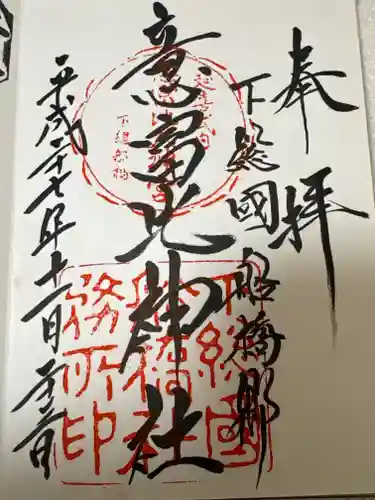 奉拝
下総國船橋郷
意富比神社
平成二十七年十一月二十三日
下総国
船橋社
務所印